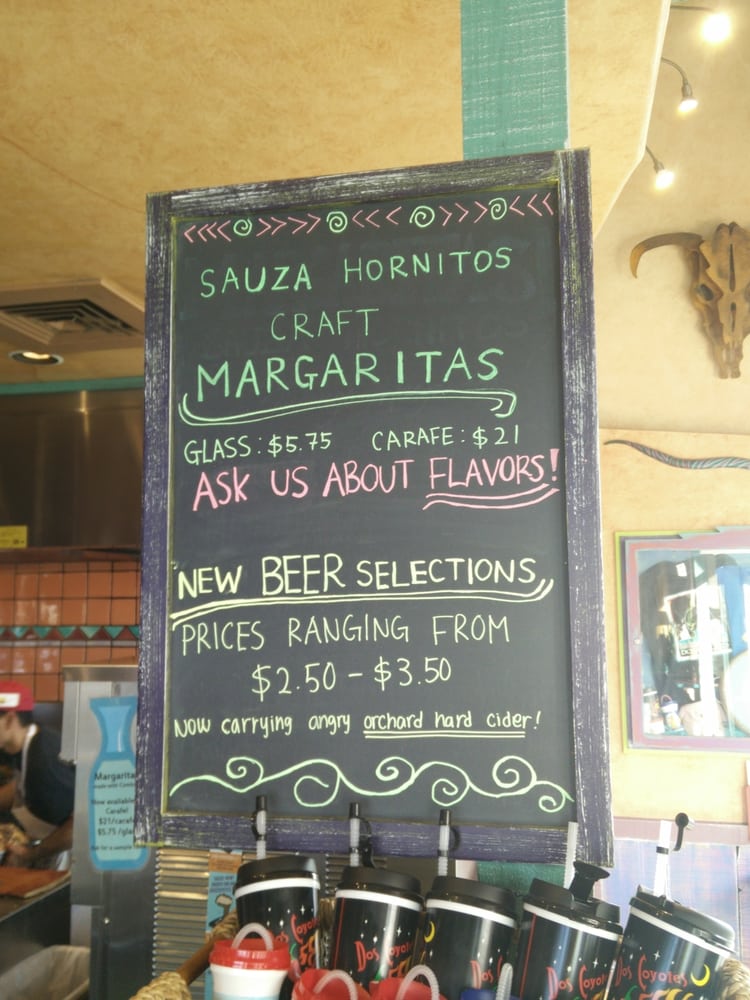 SAUZA HORNITOS
CRAFT
MARGARITAS
GLASS: $5.75 CARAFE: $21
ASK US ABOUT FLAVORS!
NEW BEER SELECTIONS
PRICES RANGING FROM
$2.50 - $3.50
Now carrying angry orchard hard cider!
Margarita
Now available
Carafe!
$21/carafe
$5.75/gla
Dos Coyotes
Dos Coyotes
Dos
Dos Coyotes
Dos Coyotes